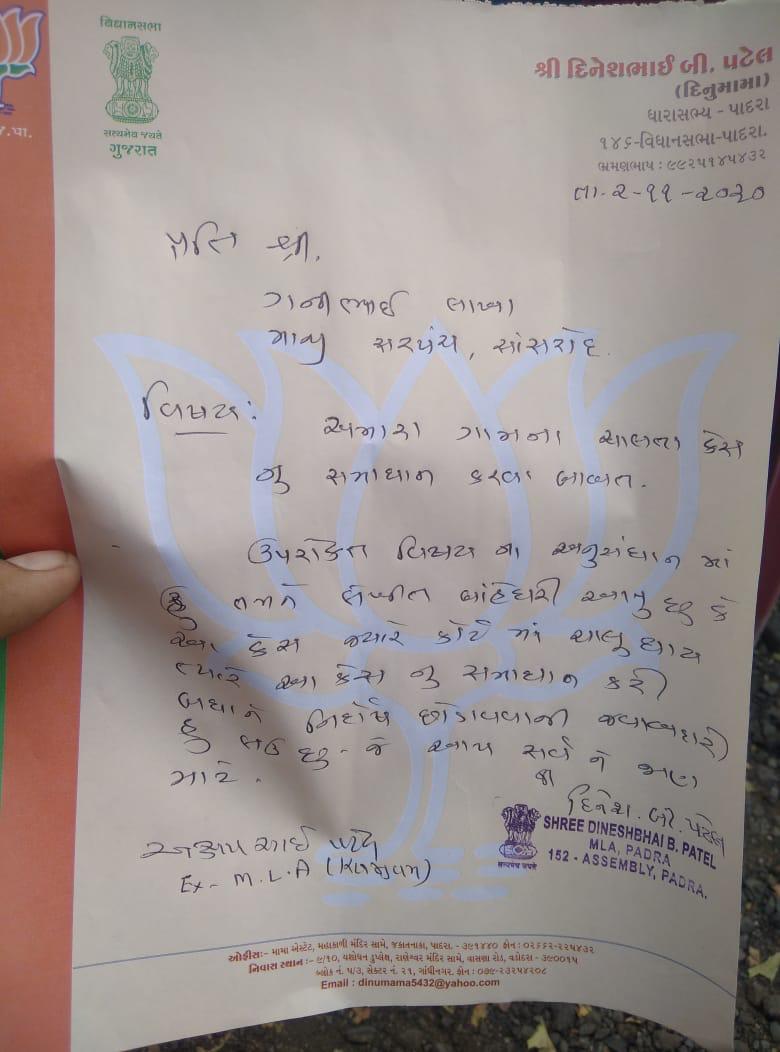 જ.પા.
વિધાનસભા
સત્યમેવ જયતે
ગુજરાત
શ્રી દિનેશભાઈ બી. પટેલ
(દિનુમામા)
ધારાસભ્ય - પાદરા
૧૪૬-વિધાનસભા-પાદરા.
ભ્રમણભાષ : ૯૯૨૫૧૪૫૪૩૨
તા-૨-૧૧-૨૦૨૦
પ્રતિ શ્રી,
ગનીભાઈ લાખા
માજી સરપંચ, સાંસરોદ
વિષય:
અમારા ગામના ચાલતા કેસ
નુ સમાધાન કરવા બાબત.
ઉપરોક્ત વિષય ના અનુસંધાન માં
હુ તમને લેખીત બાંહેધરી આપુ છુ કે
આ કેસ જ્યારે કોર્ટ માં ચાલુ થાય
ત્યારે આ કેસ નુ સમાધાન કરી
બધાને નિર્દોષ છોડાવવાની જવાબદારી
હુ લઉ છુ - જે આપ સર્વે ને જાણ
માટે.
દિનેશ. બી. પટેલ
SHREE DINESHBHAI B. PATEL
MLA, PADRA
152 - ASSEMBLY, PADRA.
સત્યમેવ જયતે
Ex- M.L.A
ઓફીસ:- મામા એસ્ટેટ, મહાકાળી મંદિર સામે, જકાતનાકા, પાદરા. - ૩૯૧૪૪૦ ફોન : ૦૨૬૬૨-૨૨૫૪૩૨
નિવાસ સ્થાન :- ૯/૧૦, યશોધન ડુપ્લેક્ષ, રાણેશ્વર મંદિર સામે, વાસણા રોડ, વડોદરા - ૩૯૦૦૧૫
બ્લોક નં. ૫/૩, સેક્ટર નં. ૨૧, ગાંધીનગર. ફોન : ૦૭૯-૨૩૨૫૪૨૦૮
Email : dinumama5432@yahoo.com